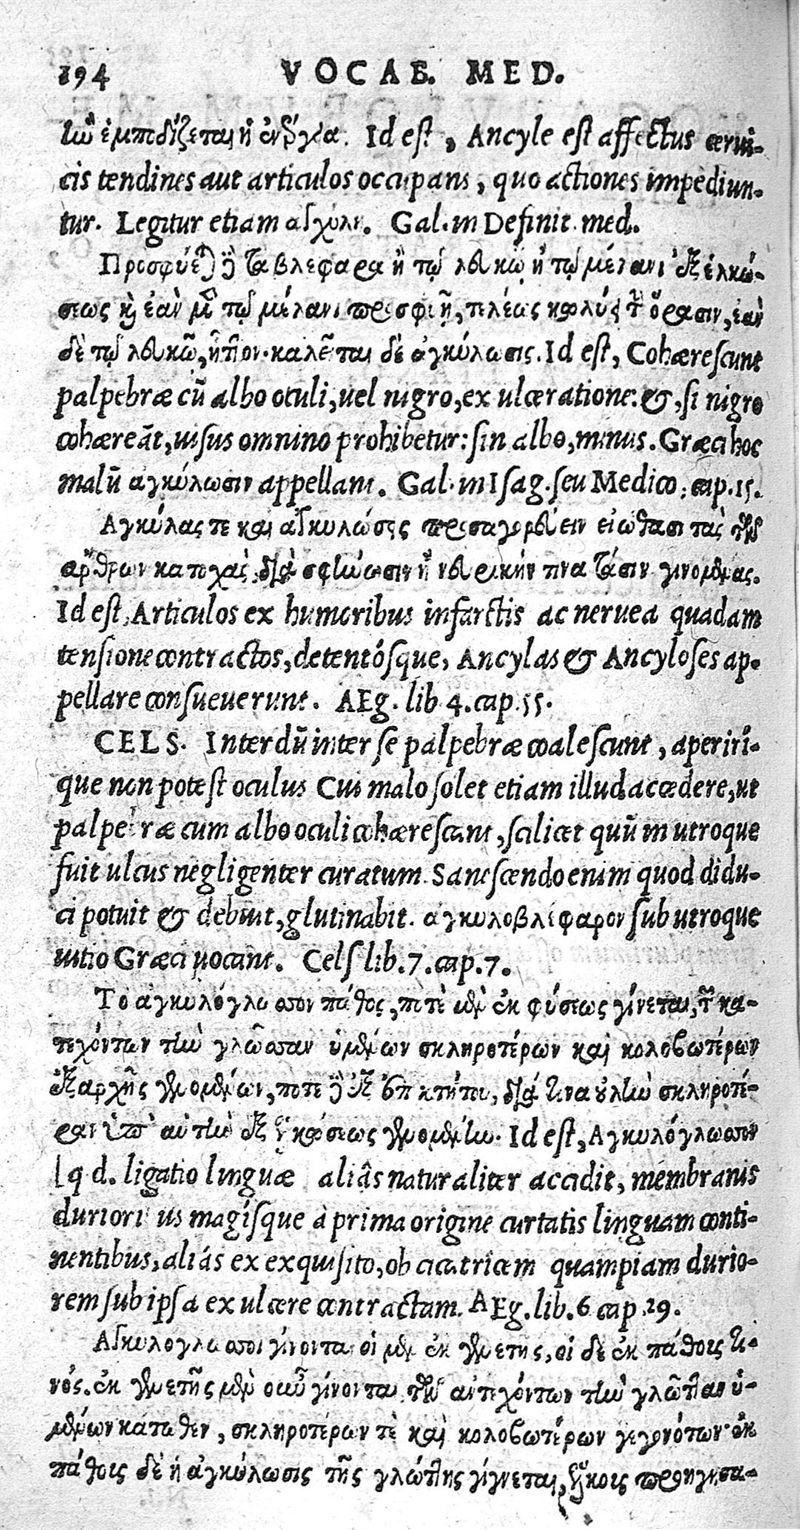 194 VOCAB. MED.
τῶν ἐμποδίζεται ἡ ἐνέργεια. Id est, Ancyle est affectus cerui-
cis tendines aut articulos occupans, quo actiones impediun-
tur. Legitur etiam ἀγχύλη. Gal. in Definit. med.
Προσφύεται δὲ τὰ βλέφαρα ἢ τῷ λευκῷ ἢ τῷ μέλανι ἐξ ἑλκώ-
σεως καὶ ἐὰν μὲν τῷ μέλανι προσφυῇ, τελέως κωλύει τὴν ὅρασιν, ἐὰν
δὲ τῷ λευκῷ, ἧττον. καλεῖται δὲ ἀγκύλωσις. Id est, Cohærescunt
palpebræ cū albo oculi, uel nigro, ex ulceratione. &, si nigro
cohæreāt, uisus omnino prohibetur: sin albo, minus. Græci hoc
malū ἀγκύλωσιν appellant. Gal. in Isag. seu Medico, cap. 15.
Αγκύλας τε καὶ ἀγκυλώσεις προσαγορεύειν εἰώθασι τὰς τῶν
ἄρθρων κατοχὰς, διὰ σφήνωσιν ἢ νευρικήν τινα τάσιν γινομένας.
Id est, Articulos ex humoribus infarctis ac neruea quadam
tensione contractos, detentósque, Ancylas & Ancyloses ap-
pellare consueuerunt. AEg. lib 4. cap. 55.
CELS. Interdū inter se palpebræ coalescunt, aperiri-
que non potest oculus Cui malo solet etiam illud accedere, ut
palpebræ cum albo oculi cohærescant, scilicet quū in utroque
fuit ulcus negligenter curatum. Sanescendo enim quod didu-
ci potuit & debuit, glutinabit. ἀγκυλοβλέφαρον sub utroque
uitio Græci uocant. Cels lib. 7. cap. 7.
Τὸ ἀγκυλόγλωσσον πάθος, ποτὲ μὲν ἐκ φύσεως γίνεται, τῶν κα-
τεχόντων τὴν γλῶσσαν ὑμένων σκληροτέρων καὶ κολοβωτέρων
ἐξ ἀρχῆς γενομένων, ποτὲ δὲ ἐξ ἐπικτήτου, διὰ τινα οὐλὴν σκληροτέ-
ραν ὑπ' αὐτὴν ἐξ ἑλκώσεως γενομένην. Id est, Αγκυλόγλωσσον
q d. ligatio linguæ aliâs naturaliter accidit, membranis
durioribus magisque à prima origine curtatis linguam conti-
nentibus, aliás ex exquisito, ob cicatricem quampiam durio-
rem sub ipsa ex ulcere contractam. AEg. lib. 6 cap 29.
Αγκυλόγλωσσοι γίνονται οἱ μὲν ἐκ γενετῆς, οἱ δὲ ἐκ πάθους τι-
νός. ἐκ γενετῆς μὲν οὖν γίνονται, τῶν ἀντεχόντων τὴν γλῶτταν ὑ-
μένων κάτωθεν, σκληροτέρων τὲ καὶ κολοβωτέρων γεγονότων· ἐκ
πάθους δὲ ἡ ἀγκύλωσις τῆς γλώττης γίγνεται, ἕλκους προηγησα-